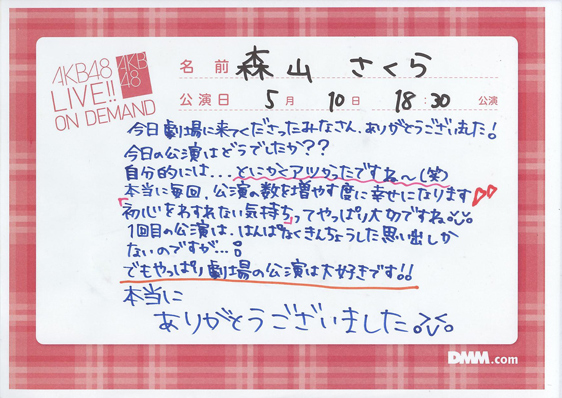 AKB48
LIVE!!
ON DEMAND
AKB
48
名前 森山 さくら
公演日 5月 10日 18:30 公演
今日劇場に来てくださったみなさん、ありがとうございました!
今日の公演はどうでしたか??
自分的には...とにかくアツかったですね〜(笑)
本当に毎回、公演の数を増やす度に幸せになります
「初心をわすれない気持ちってやっぱり大切ですね。
1回目の公演は、はんぱなくきんちょうした思い出しか
ないのですが...
でもやっぱり劇場の公演は大好きです!!
本当に
ありがとうございました。
DMM.com